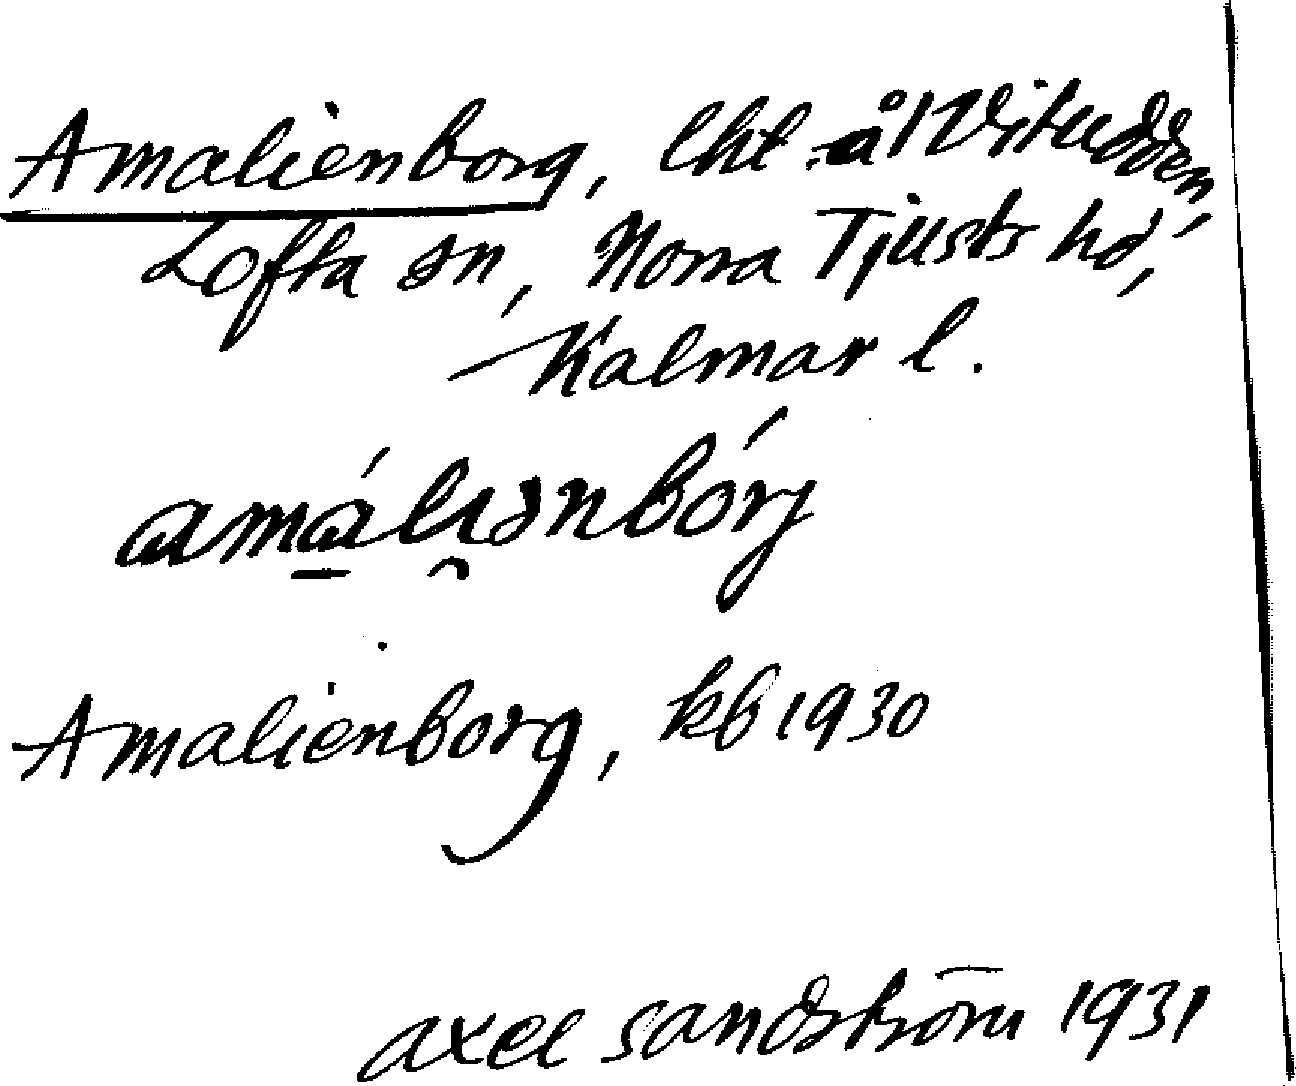 Amalienborg, lht. å 1 Vitudden,
Lofta sn, Norra Tjusts hd,
Kalmar l.
amáli̯ənbórj
Amalienborg, kb 1930
Axel Sandström 1931